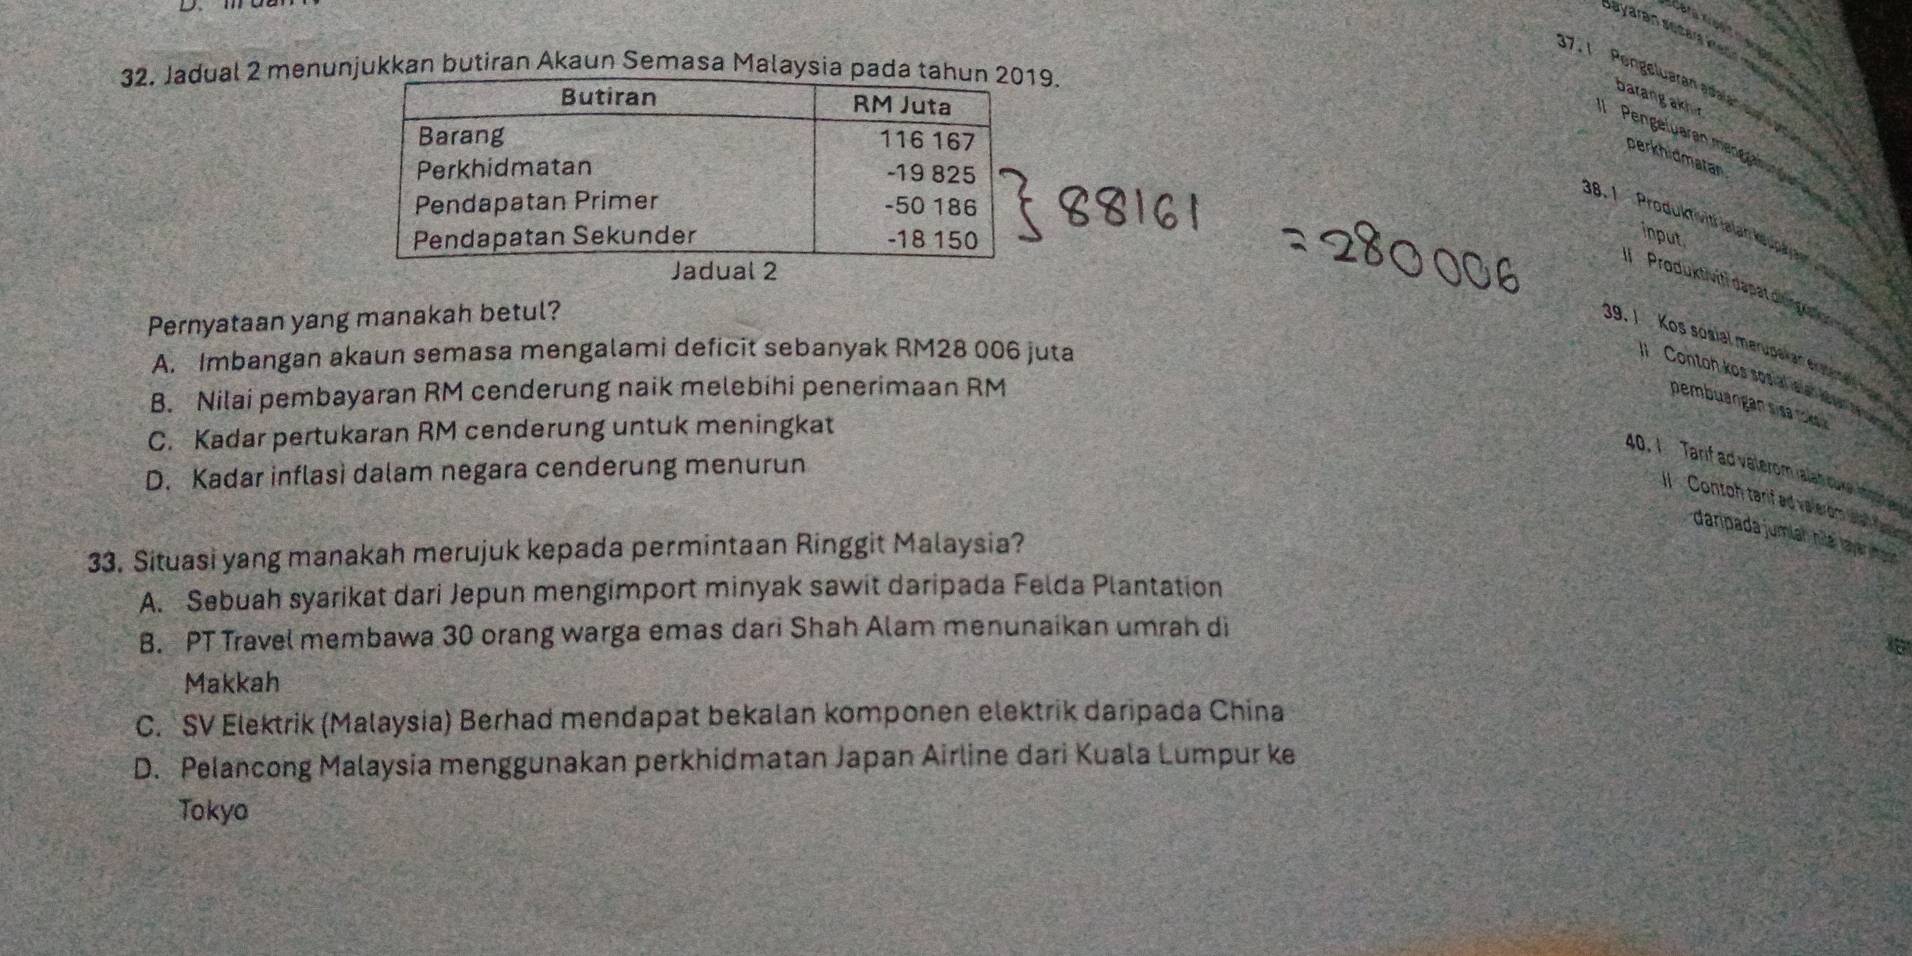 32. Jadual 2 menunjukkan butiran Akaun Semasa Malaysia pada tahun 2019.
Butiran RM Juta
Barang 116 167
Perkhidmatan -19 825
Pendapatan Primer -50 186
Pendapatan Sekunder -18 150
} 88161
= 280006
Jadual 2
Pernyataan yang manakah betul?
A. Imbangan akaun semasa mengalami deficit sebanyak RM28 006 juta
B. Nilai pembayaran RM cenderung naik melebihi penerimaan RM
C. Kadar pertukaran RM cenderung untuk meningkat
D. Kadar inflasi dalam negara cenderung menurun
33. Situasi yang manakah merujuk kepada permintaan Ringgit Malaysia?
A. Sebuah syarikat dari Jepun mengimport minyak sawit daripada Felda Plantation
B. PT Travel membawa 30 orang warga emas dari Shah Alam menunaikan umrah di
Makkah
C. SV Elektrik (Malaysia) Berhad mendapat bekalan komponen elektrik daripada China
D. Pelancong Malaysia menggunakan perkhidmatan Japan Airline dari Kuala Lumpur ke
Tokyo
37. I Pengeluaran adalah
barang akhir
II Pengeluaran
perkhidmatan
38. I Produktiviti ialah
input.
II Produktiviti dapat
39. I Kos sosial merupakan
II Contoh kos sosial ialah
pembuangan sisa toksik
40. I Tarif ad valerom ialah
II Contoh tarif ad valerom
daripada jumlah nilai